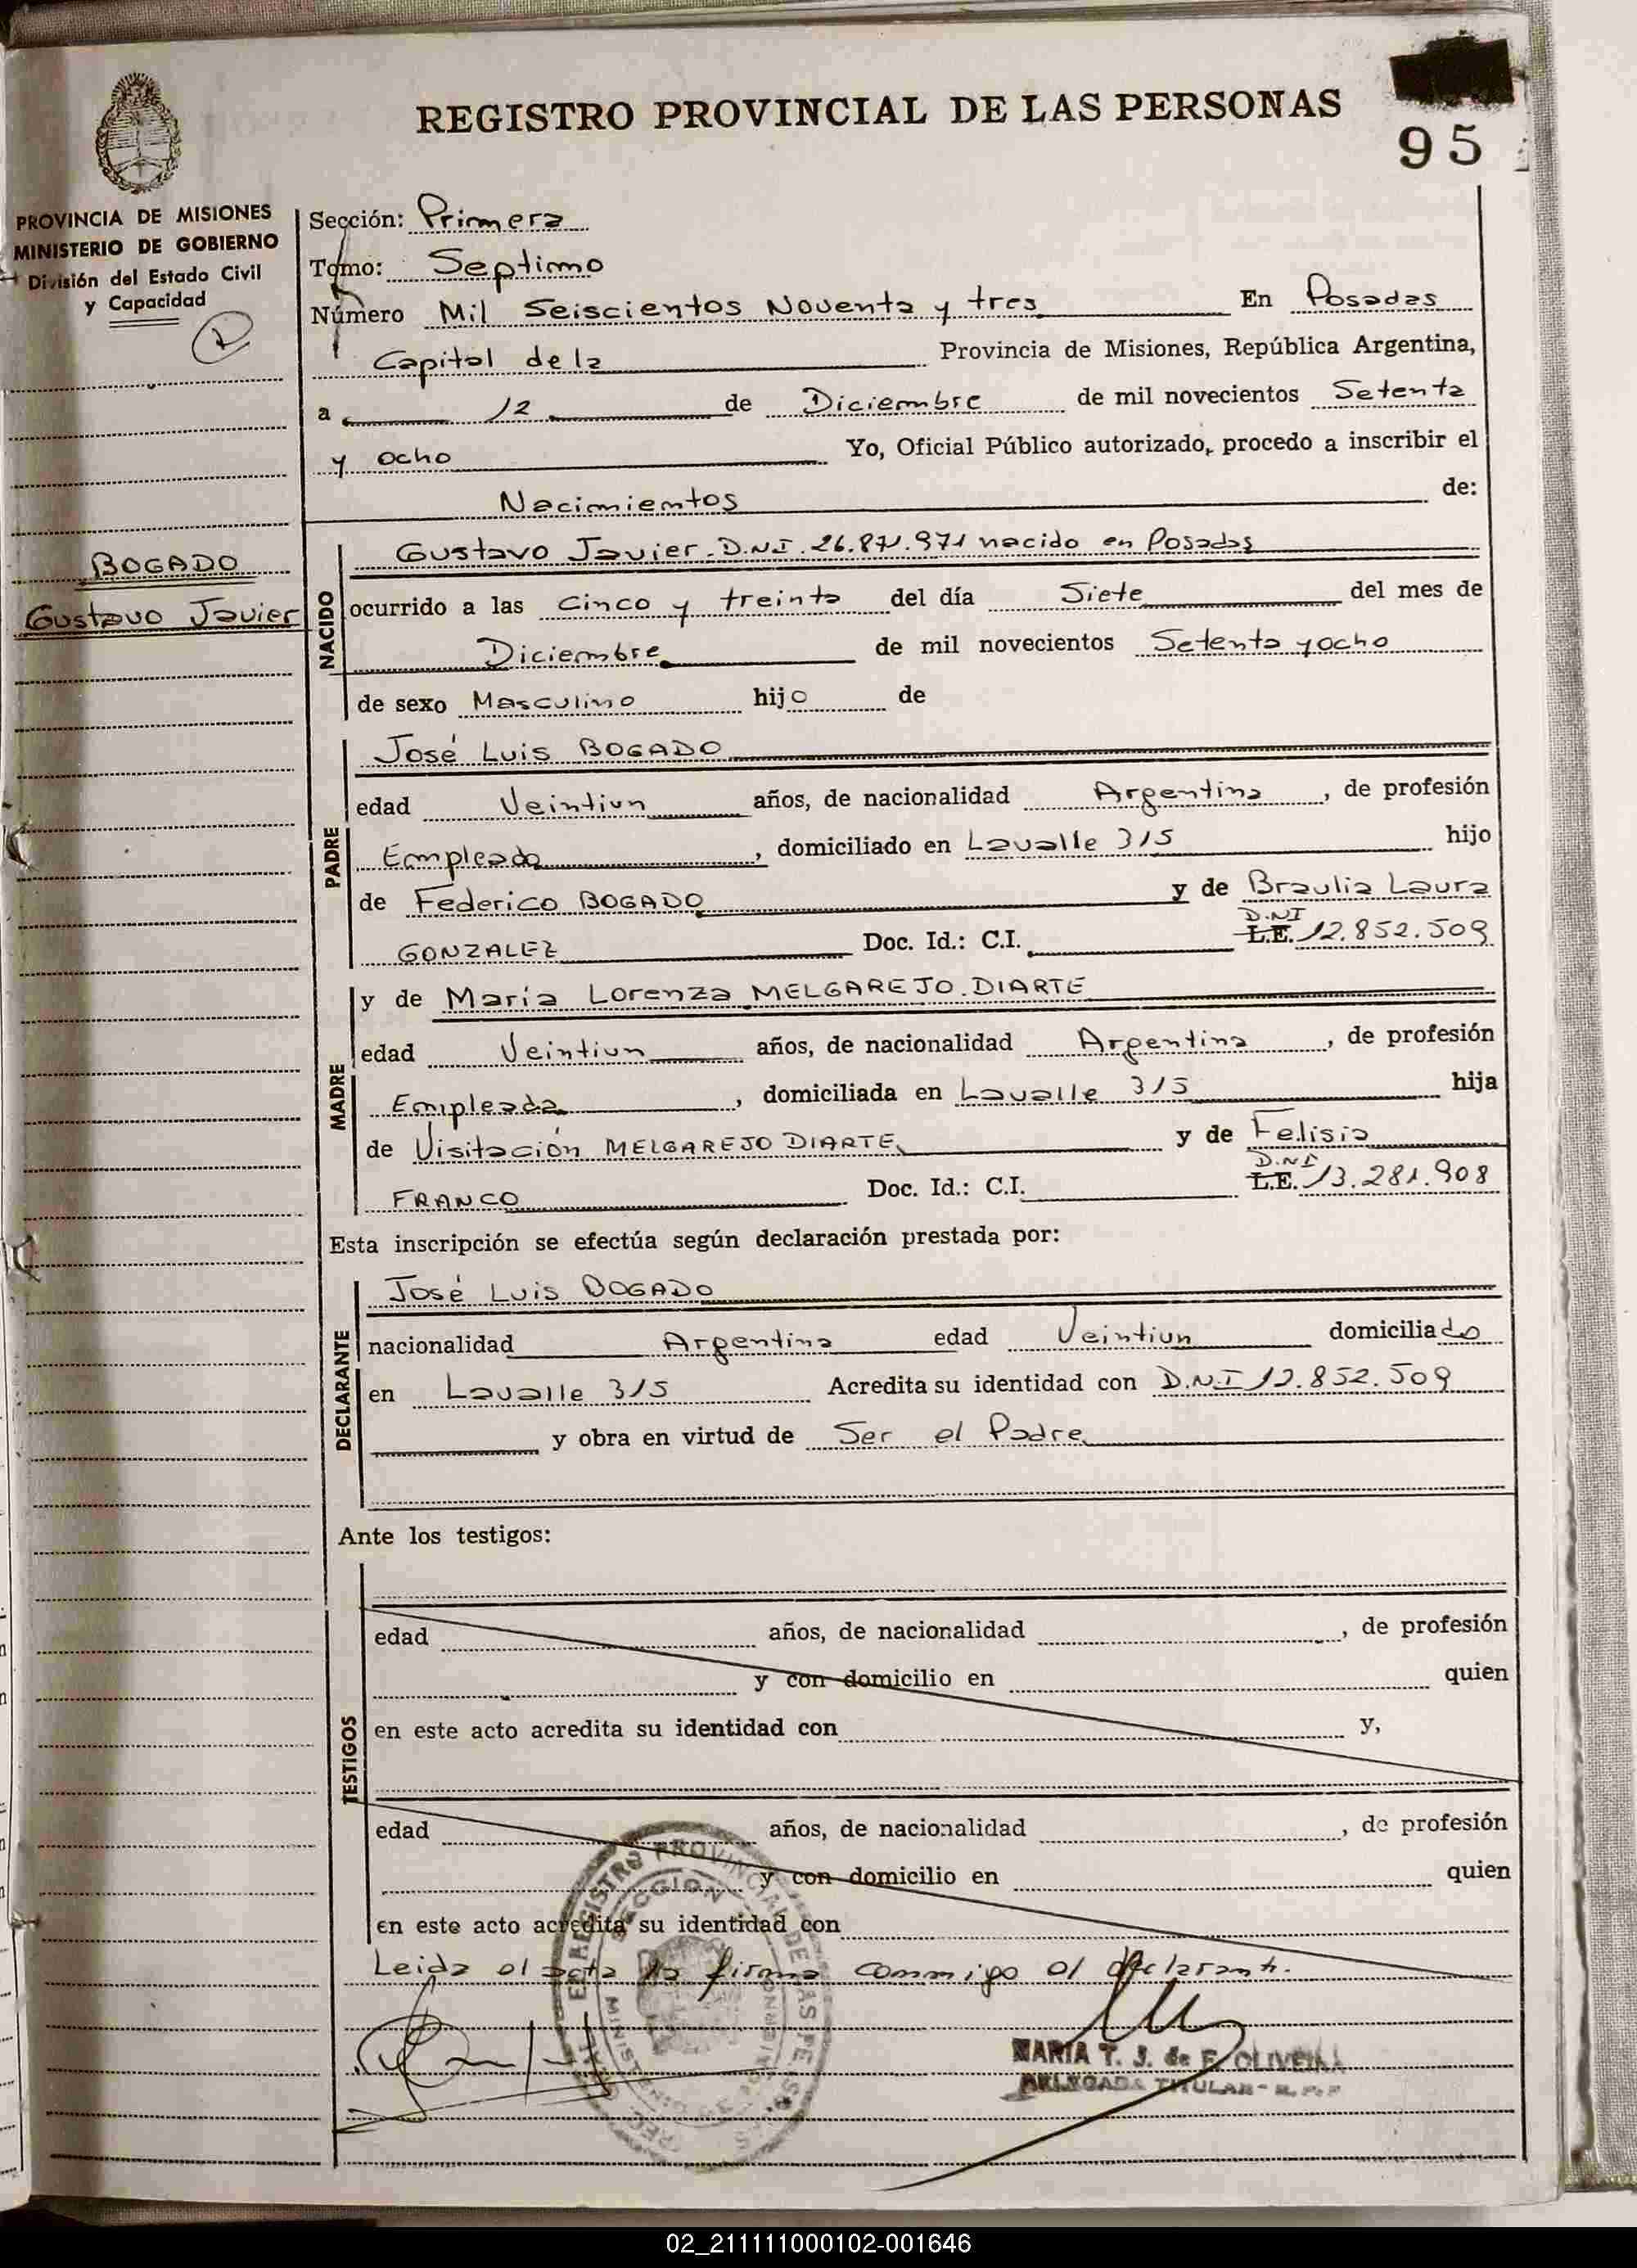 REGISTRO PROVINCIAL DE LAS PERSONAS
95
PROVINCIA DE MISIONES
MINISTERIO DE GOBIERNO
División del Estado Civil
y Capacidad
BOGADO
Gustavo Javier
Sección: Primera
Tomo: Septimo
Número Mil Seiscientos Noventa y tres En Posadas
Capital de la Provincia de Misiones, República Argentina,
a 12 de Diciembre de mil novecientos Setenta
y ocho Yo, Oficial Público autorizado, procedo a inscribir el
Nacimientos de:
NACIDO
Gustavo Javier. D.N.I. 26.871.971 nacido en Posadas
ocurrido a las cinco y treinta del día Siete del mes de
Diciembre de mil novecientos Setenta y ocho
de sexo Masculino hijo de
PADRE
José Luis BOGADO
edad Veintiun años, de nacionalidad Argentina, de profesión
Empleado, domiciliado en Lavalle 315 hijo
de Federico BOGADO y de Braulia Laura
GONZALEZ Doc. Id.: C.I. L.E. D.N.I 12.852.509
MADRE
y de María Lorenza MELGAREJO DIARTE
edad Veintiun años, de nacionalidad Argentina, de profesión
Empleada, domiciliada en Lavalle 315 hija
de Visitación MELGAREJO DIARTE y de Felisia
FRANCO Doc. Id.: C.I. L.E. D.N.I 13.281.908
Esta inscripción se efectúa según declaración prestada por:
DECLARANTE
José Luis BOGADO
nacionalidad Argentina edad Veintiun domiciliado
en Lavalle 315 Acredita su identidad con D.N.I 12.852.509
y obra en virtud de Ser el Padre
Ante los testigos:
TESTIGOS
edad años, de nacionalidad , de profesión
y con domicilio en quien
en este acto acredita su identidad con y,
edad años, de nacionalidad , de profesión
y con domicilio en quien
en este acto acredita su identidad con
Leida el acta la firma conmigo el declarante.
MARIA T. J. de F. OLIVEIRA
DELEGADA TITULAR - R.P.P
02_211111000102-001646